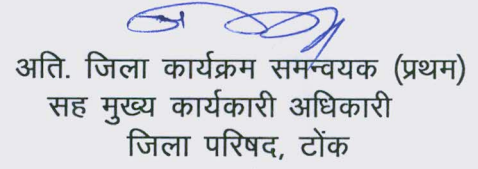 अति. जिला कार्यक्रम समन्वयक (प्रथम)
सह मुख्य कार्यकारी अधिकारी
जिला परिषद, टोंक